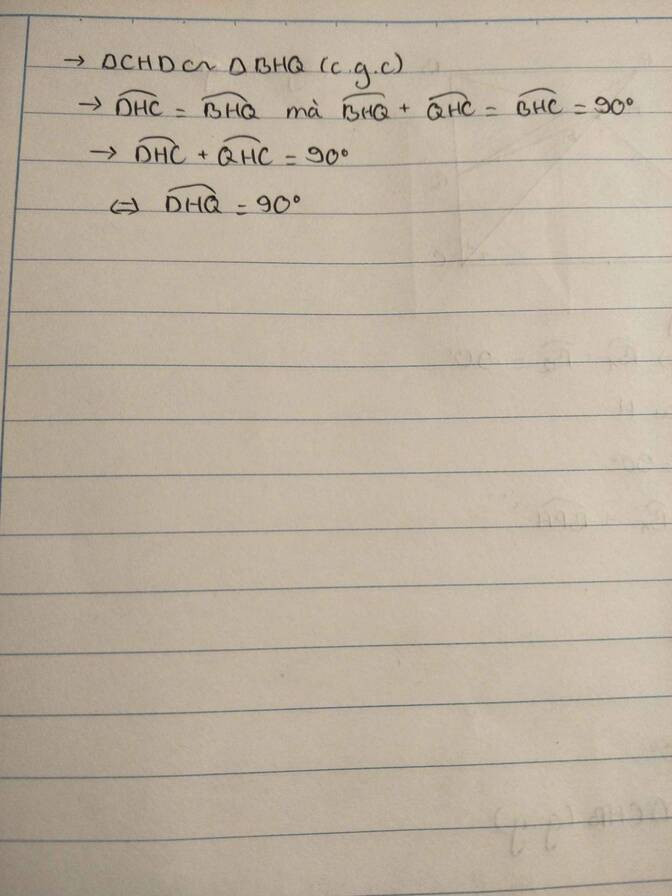 → ΔCHD ∽ ΔBHQ (c.g.c)
→ \widehat{DHC} = \widehat{BHQ} mà \widehat{BHQ} + \widehat{QHC} = \widehat{BHC} = 90°
→ \widehat{DHC} + \widehat{QHC} = 90°
⇔ \widehat{DHQ} = 90°